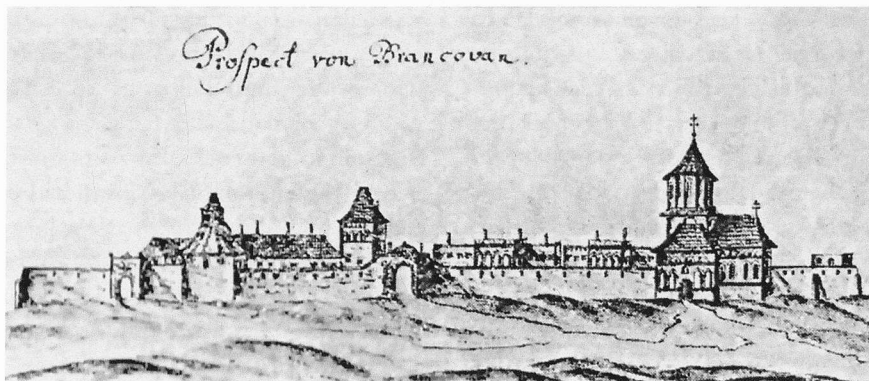 Prospect von Brancovan.